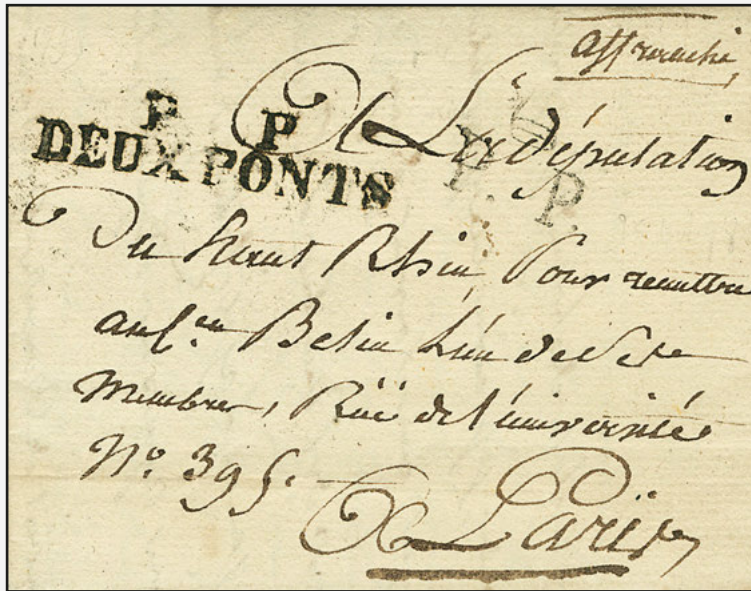 affranchi
P P
DEUX PONTS
P. P.
A La députation
Du haut Rhin, Pour remettre
au Cen Belin L'un de Ses
Membres, Rüe de l'université
No. 395.
A Paris